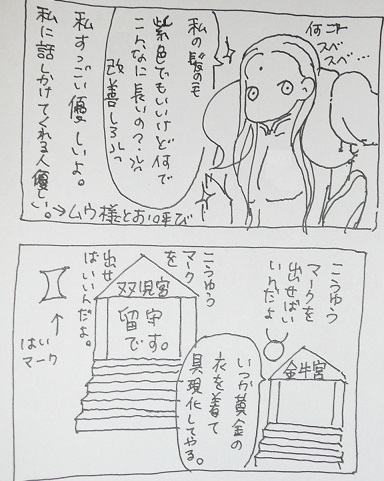 何これ
スベ
スベ…
私の髪の毛
紫色でもいいけど何で
こんなに長いの？
改善しろっ
私すっごい優しいよ。
私に話しかけてくれる人優しい。
→ムウ様とお呼び
こうゆう
マークを
出せばい
いんだよ
金牛宮
いつか黄金の
衣を着て
具現化してやる。
こうゆう
マーク
を
双児宮
留守
です。
出せ
ばいいんだよ。
はい
マーク